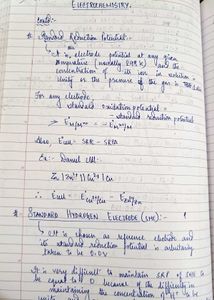 ELECTROCHEMISTRY.
contd:-
* Standard Reduction Potential:-
→ It is electrode potential at any given
temperature (normally 298 K) and the
concentration of its ion in solution is
Unity or the pressure of the gas is
For any electrode
standard oxidation potential =
- standard reduction potential
Also, E°cell = SRP - SRP
Ex:- Daniel Cell:-
Zn | Zn²⁺ || Cu²⁺ | Cu
E°cell = E°Cu²⁺/Cu - E°Zn²⁺/Zn
* STANDARD HYDROGEN ELECTRODE (SHE):-
→ It is chosen as reference electrode and
its standard reduction potential is arbitrarily
taken to be 0.0V
It is very difficult to maintain SRP of SHE to
be equal to 0 because of the difficulty in
maintaining the concentration of H⁺ to be